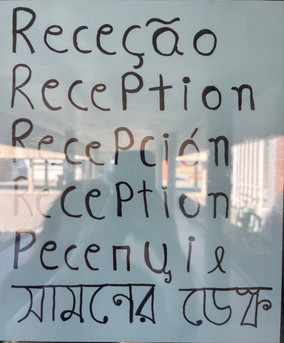 Receção
Reception
Recepción
Reception
সামনের ডেস্ক